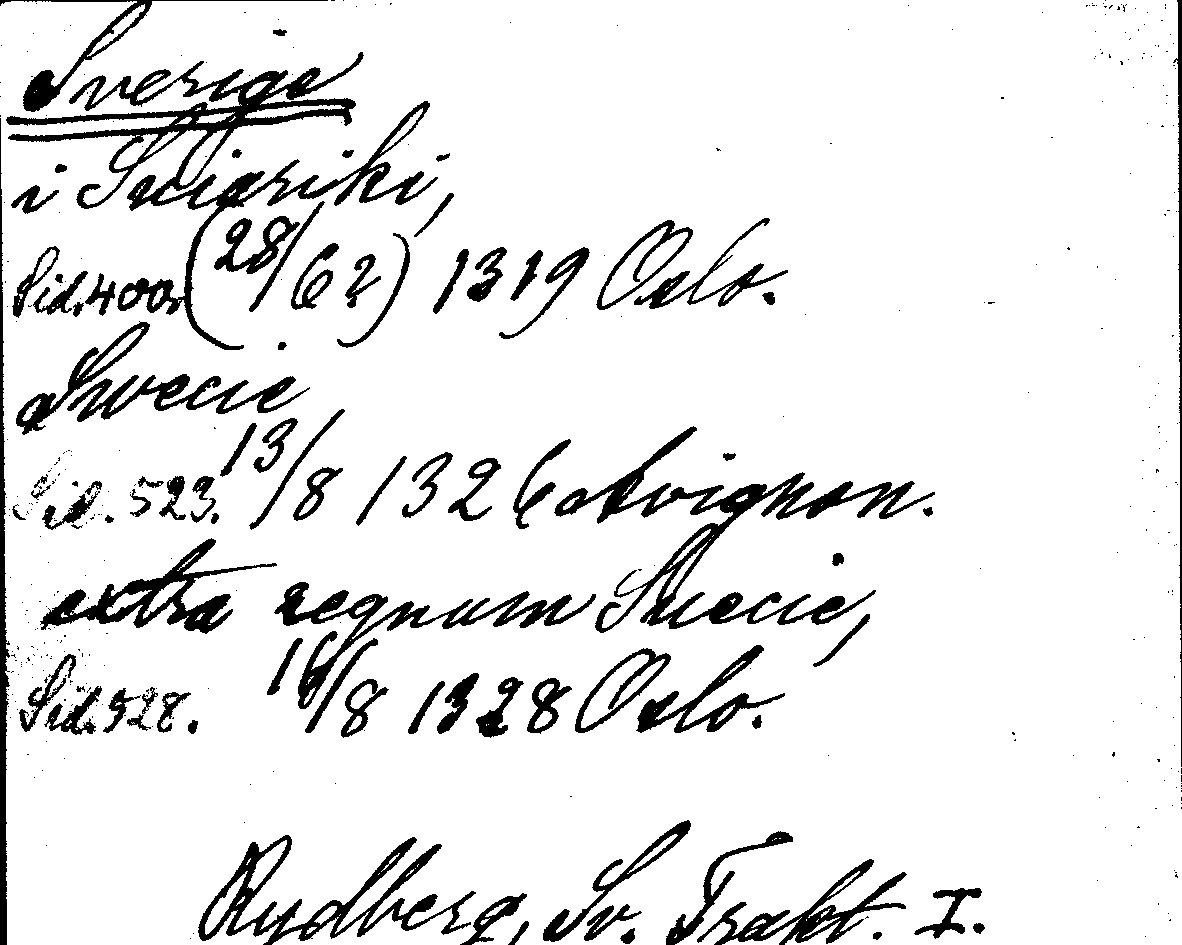 Sverige
i Suiariki,
Sid. 400. (28/6?) 1319 Oslo.
a Swecie
Sid. 523. 13/8 1326 Avignon.
extra regnum Suecie,
Sid. 528. /8 1328 Oslo.
Rydberg, Sv. Trakt. I.